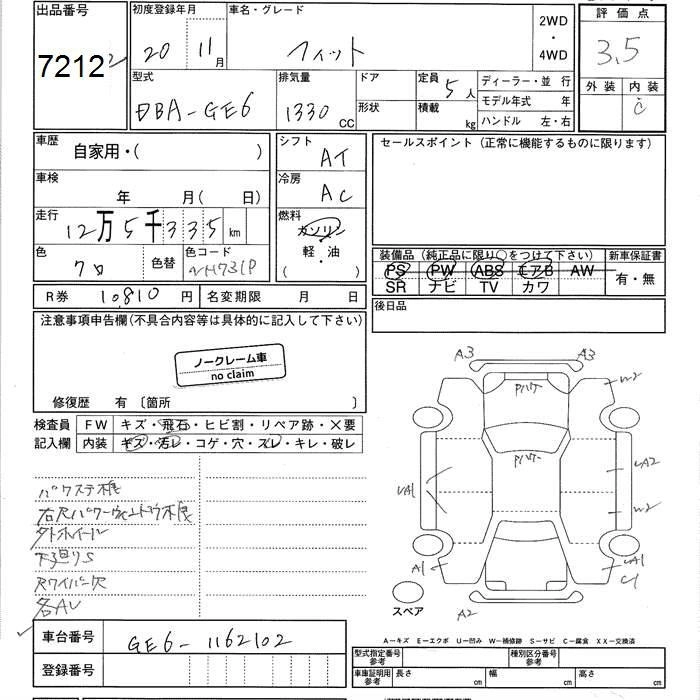 出品番号
7212
2
初度登録年月
20 11月
車名・グレード
フィット
2WD
・
4WD
評価点
3.5
外装 内装
C
型式
DBA-GE6
排気量
1330 CC
ドア
形状
定員
5人
積載
kg
ディーラー・並 行
モデル年式 年
ハンドル 左・右
車歴
自家用・( )
車検
年 月( 日)
走行
12万5千335 km
色
クロ
色替
色コード
NH731P
シフト
AT
冷房
AC
燃料
ガソリン
軽・油
( )
セールスポイント (正常に機能するものに限ります)
装備品 (純正品に限り○をつけて下さい)
PS PW ABS エアB AW
SR ナビ TV カワ
新車保証書
有・無
R券 10,810 円
名変期限 月 日
後日品
注意事項申告欄(不具合内容等は具体的に記入して下さい)
ノークレーム車
no claim
修復歴 有 〔箇所 〕
検査員
記入欄
FW キズ・飛石・ヒビ割・リペア跡・×要
内装 キズ・汚レ・コゲ・穴・スレ・キレ・破レ
パワステ機
外ホイール
下廻りS
Rワイパー欠
各AU
A3 A3
Pハケ
W2
Pハケ
UA2
UA1
W2
A1
UA1
A2
スペア
A−キズ E−エクボ U−凹み W−補修跡 S−サビ C−腐食 XX−交換済
車台番号
GE6-1162102
登録番号
型式指定番号
参考
種別区分番号
参考
車庫証明用
参考
長さ cm 幅 cm 高さ cm